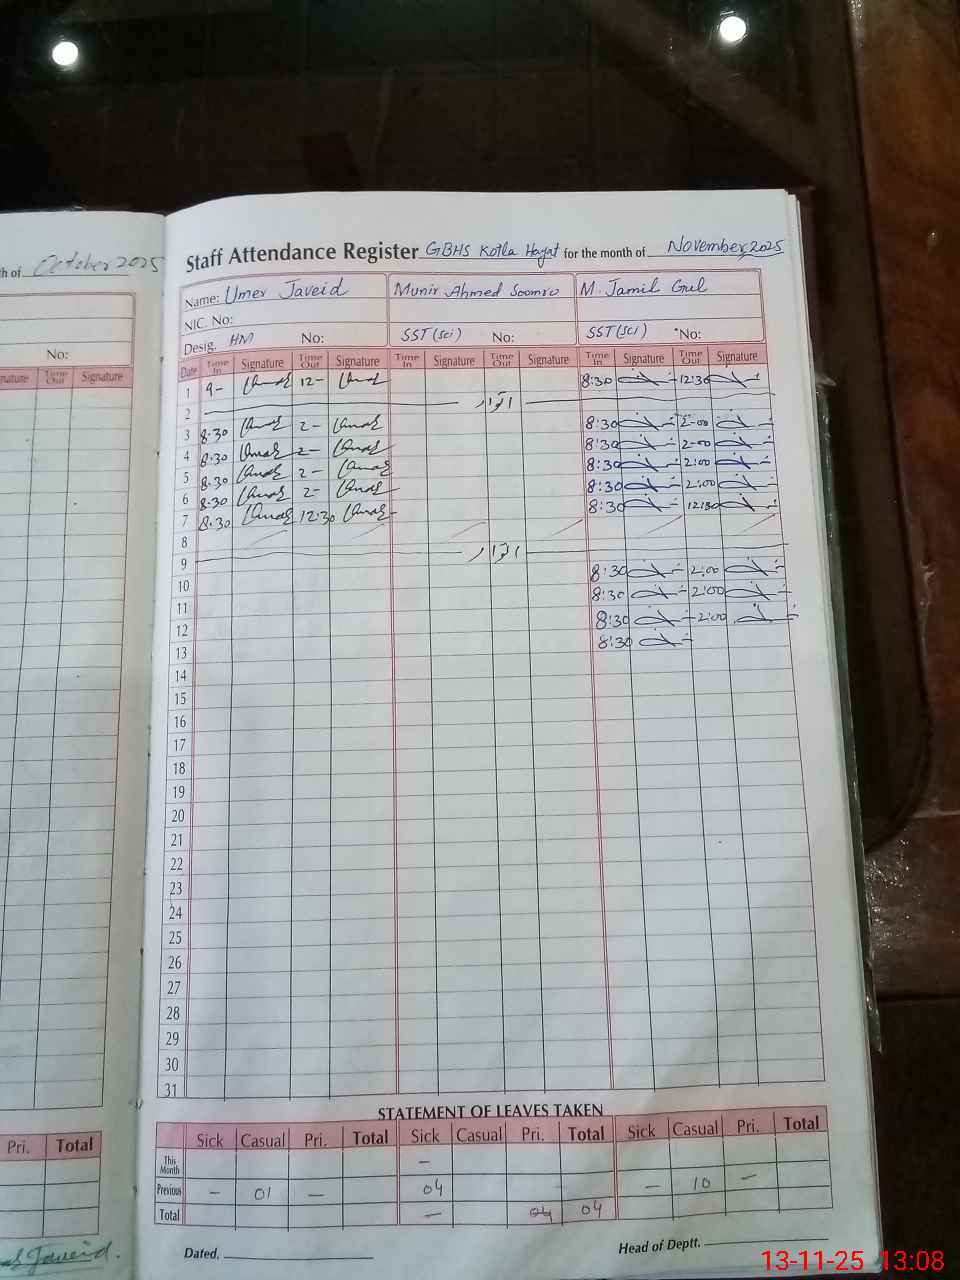 th of October 2025
No:
nature Time Out Signature
Pri. Total
Javeid.
Staff Attendance Register GBHS Kotla Hayat for the month of November, 2025
Name: Umer Javeid Munir Ahmed Soomro M. Jamil Gul
NIC. No:
Desig. HM No: SST (sci) No: SST (sci) No:
Date Time In Signature Time Out Signature Time In Signature Time Out Signature Time In Signature Time Out Signature
1 9- Umer 12- Umer 8:30 12:30
2 اتوار
3 8:30 Umer 2- Umer 8:30 2:00
4 8:30 Umer 2- Umer 8:30 2:00
5 8:30 Umer 2- Umer 8:30 2:00
6 8:30 Umer 2- Umer 8:30 2:00
7 8:30 Umer 12:30 Umer 8:30 12:30
8
9 اتوار
10 8:30 2:00
11 8:30 2:00
12 8:30 2:00
13 8:30
14
15
16
17
18
19
20
21
22
23
24
25
26
27
28
29
30
31
STATEMENT OF LEAVES TAKEN
Sick Casual Pri. Total Sick Casual Pri. Total Sick Casual Pri. Total
This Month –
Previous – 01 – 04 – 10 –
Total – 04 04
Dated. Head of Deptt.
13-11-25 13:08